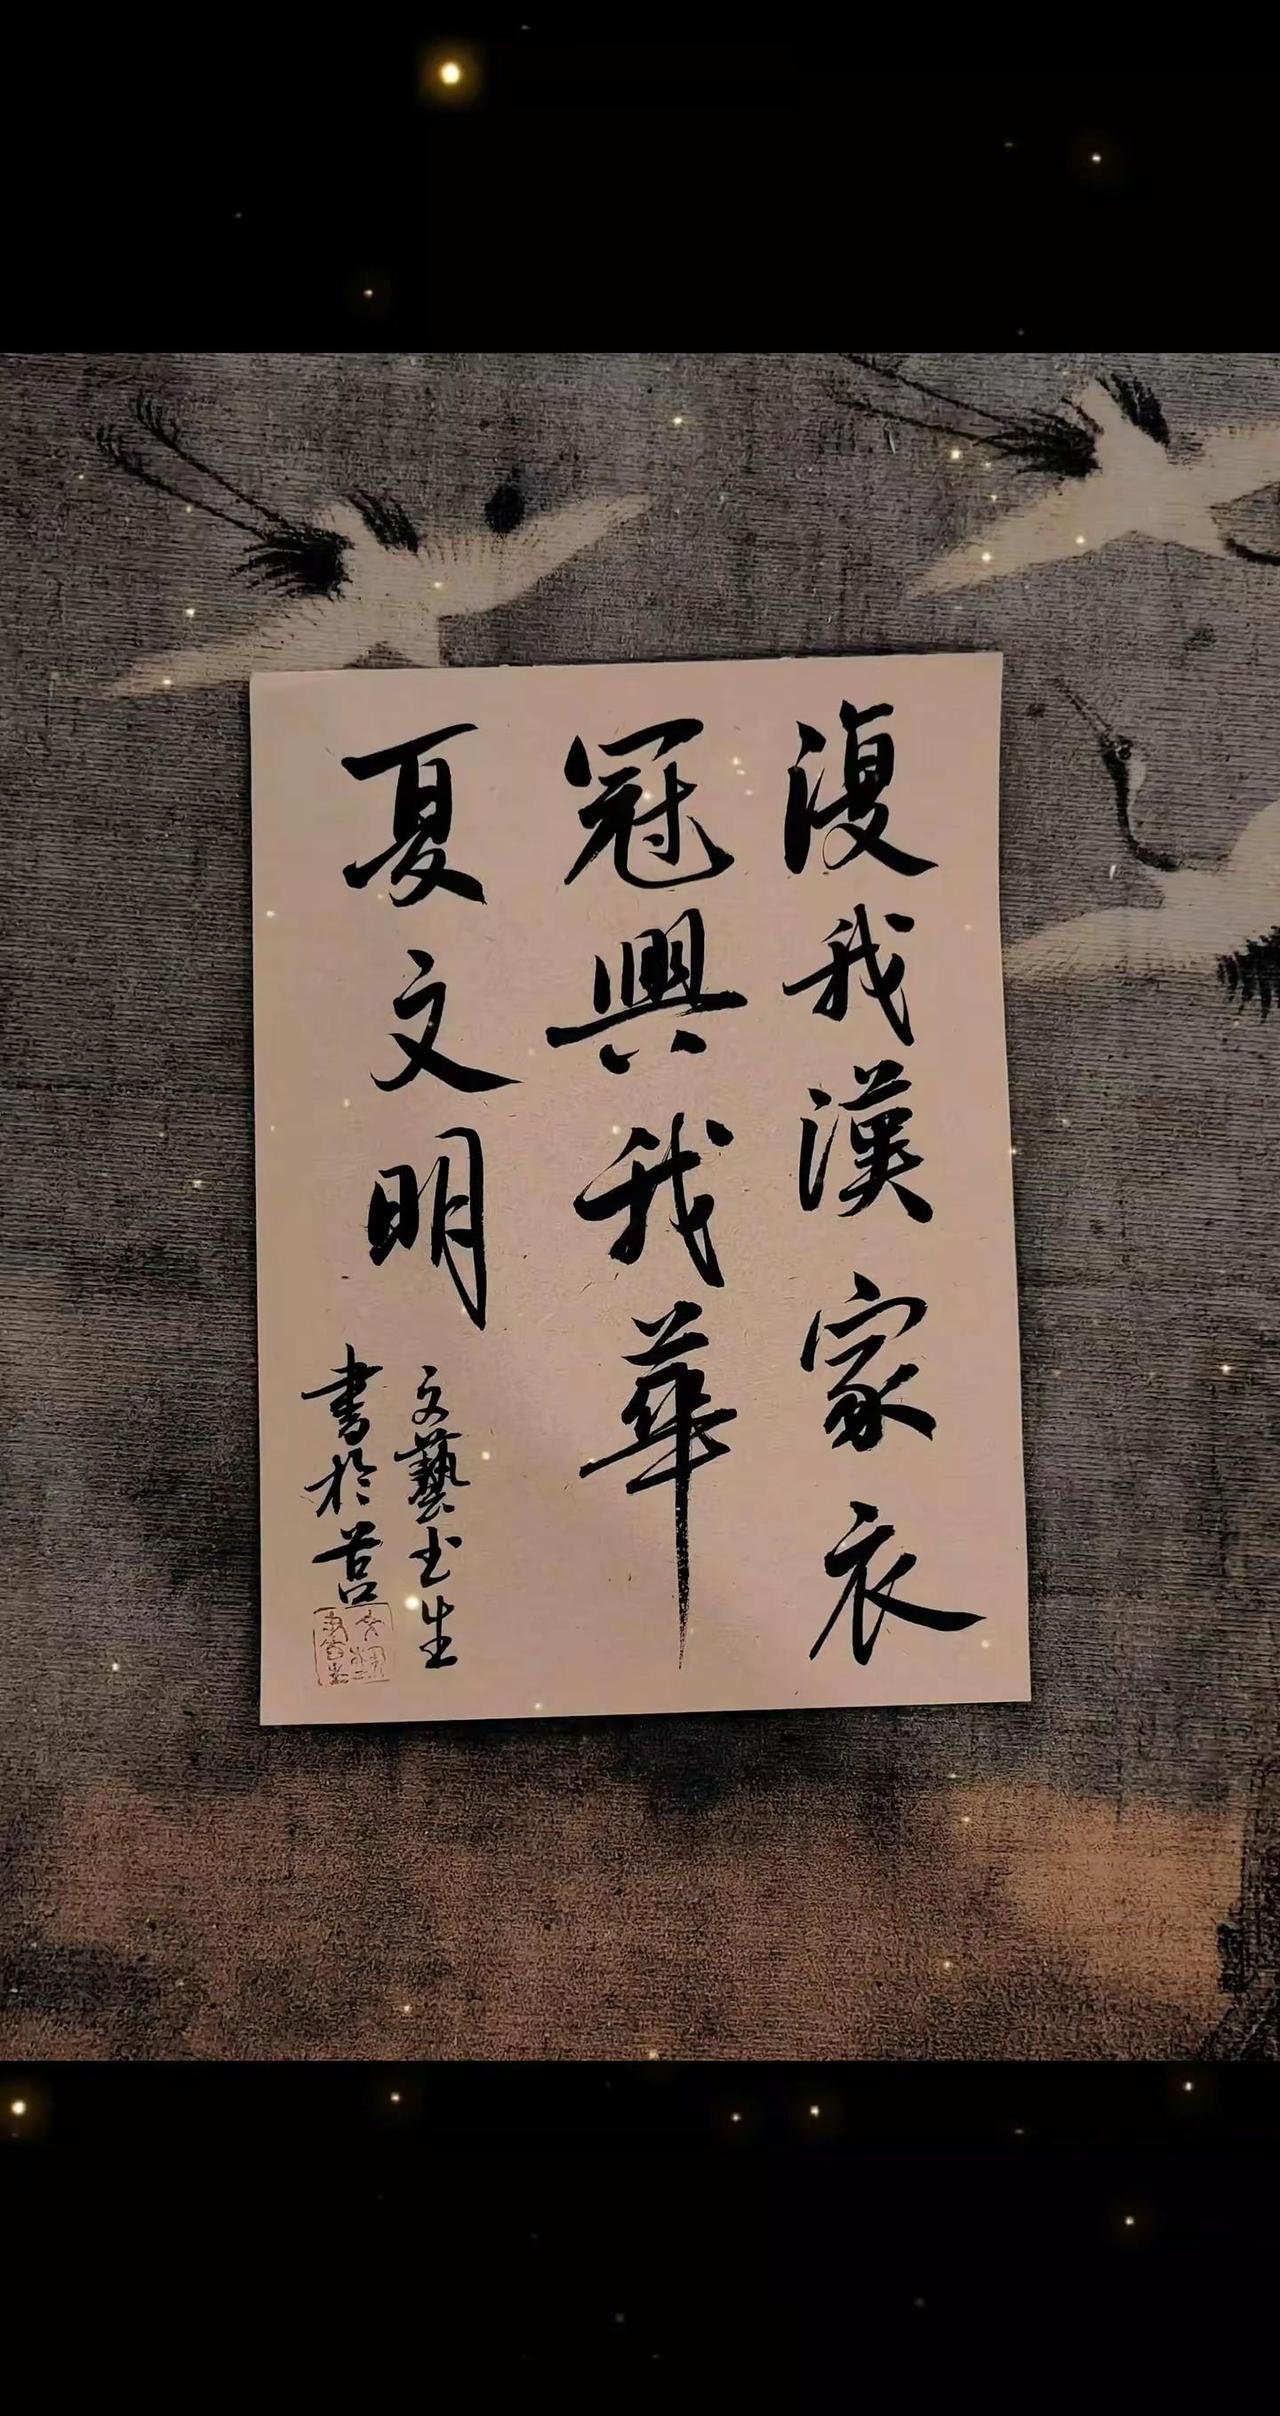 復我漢家衣
冠興我華
夏文明
文藝书生
書於莒